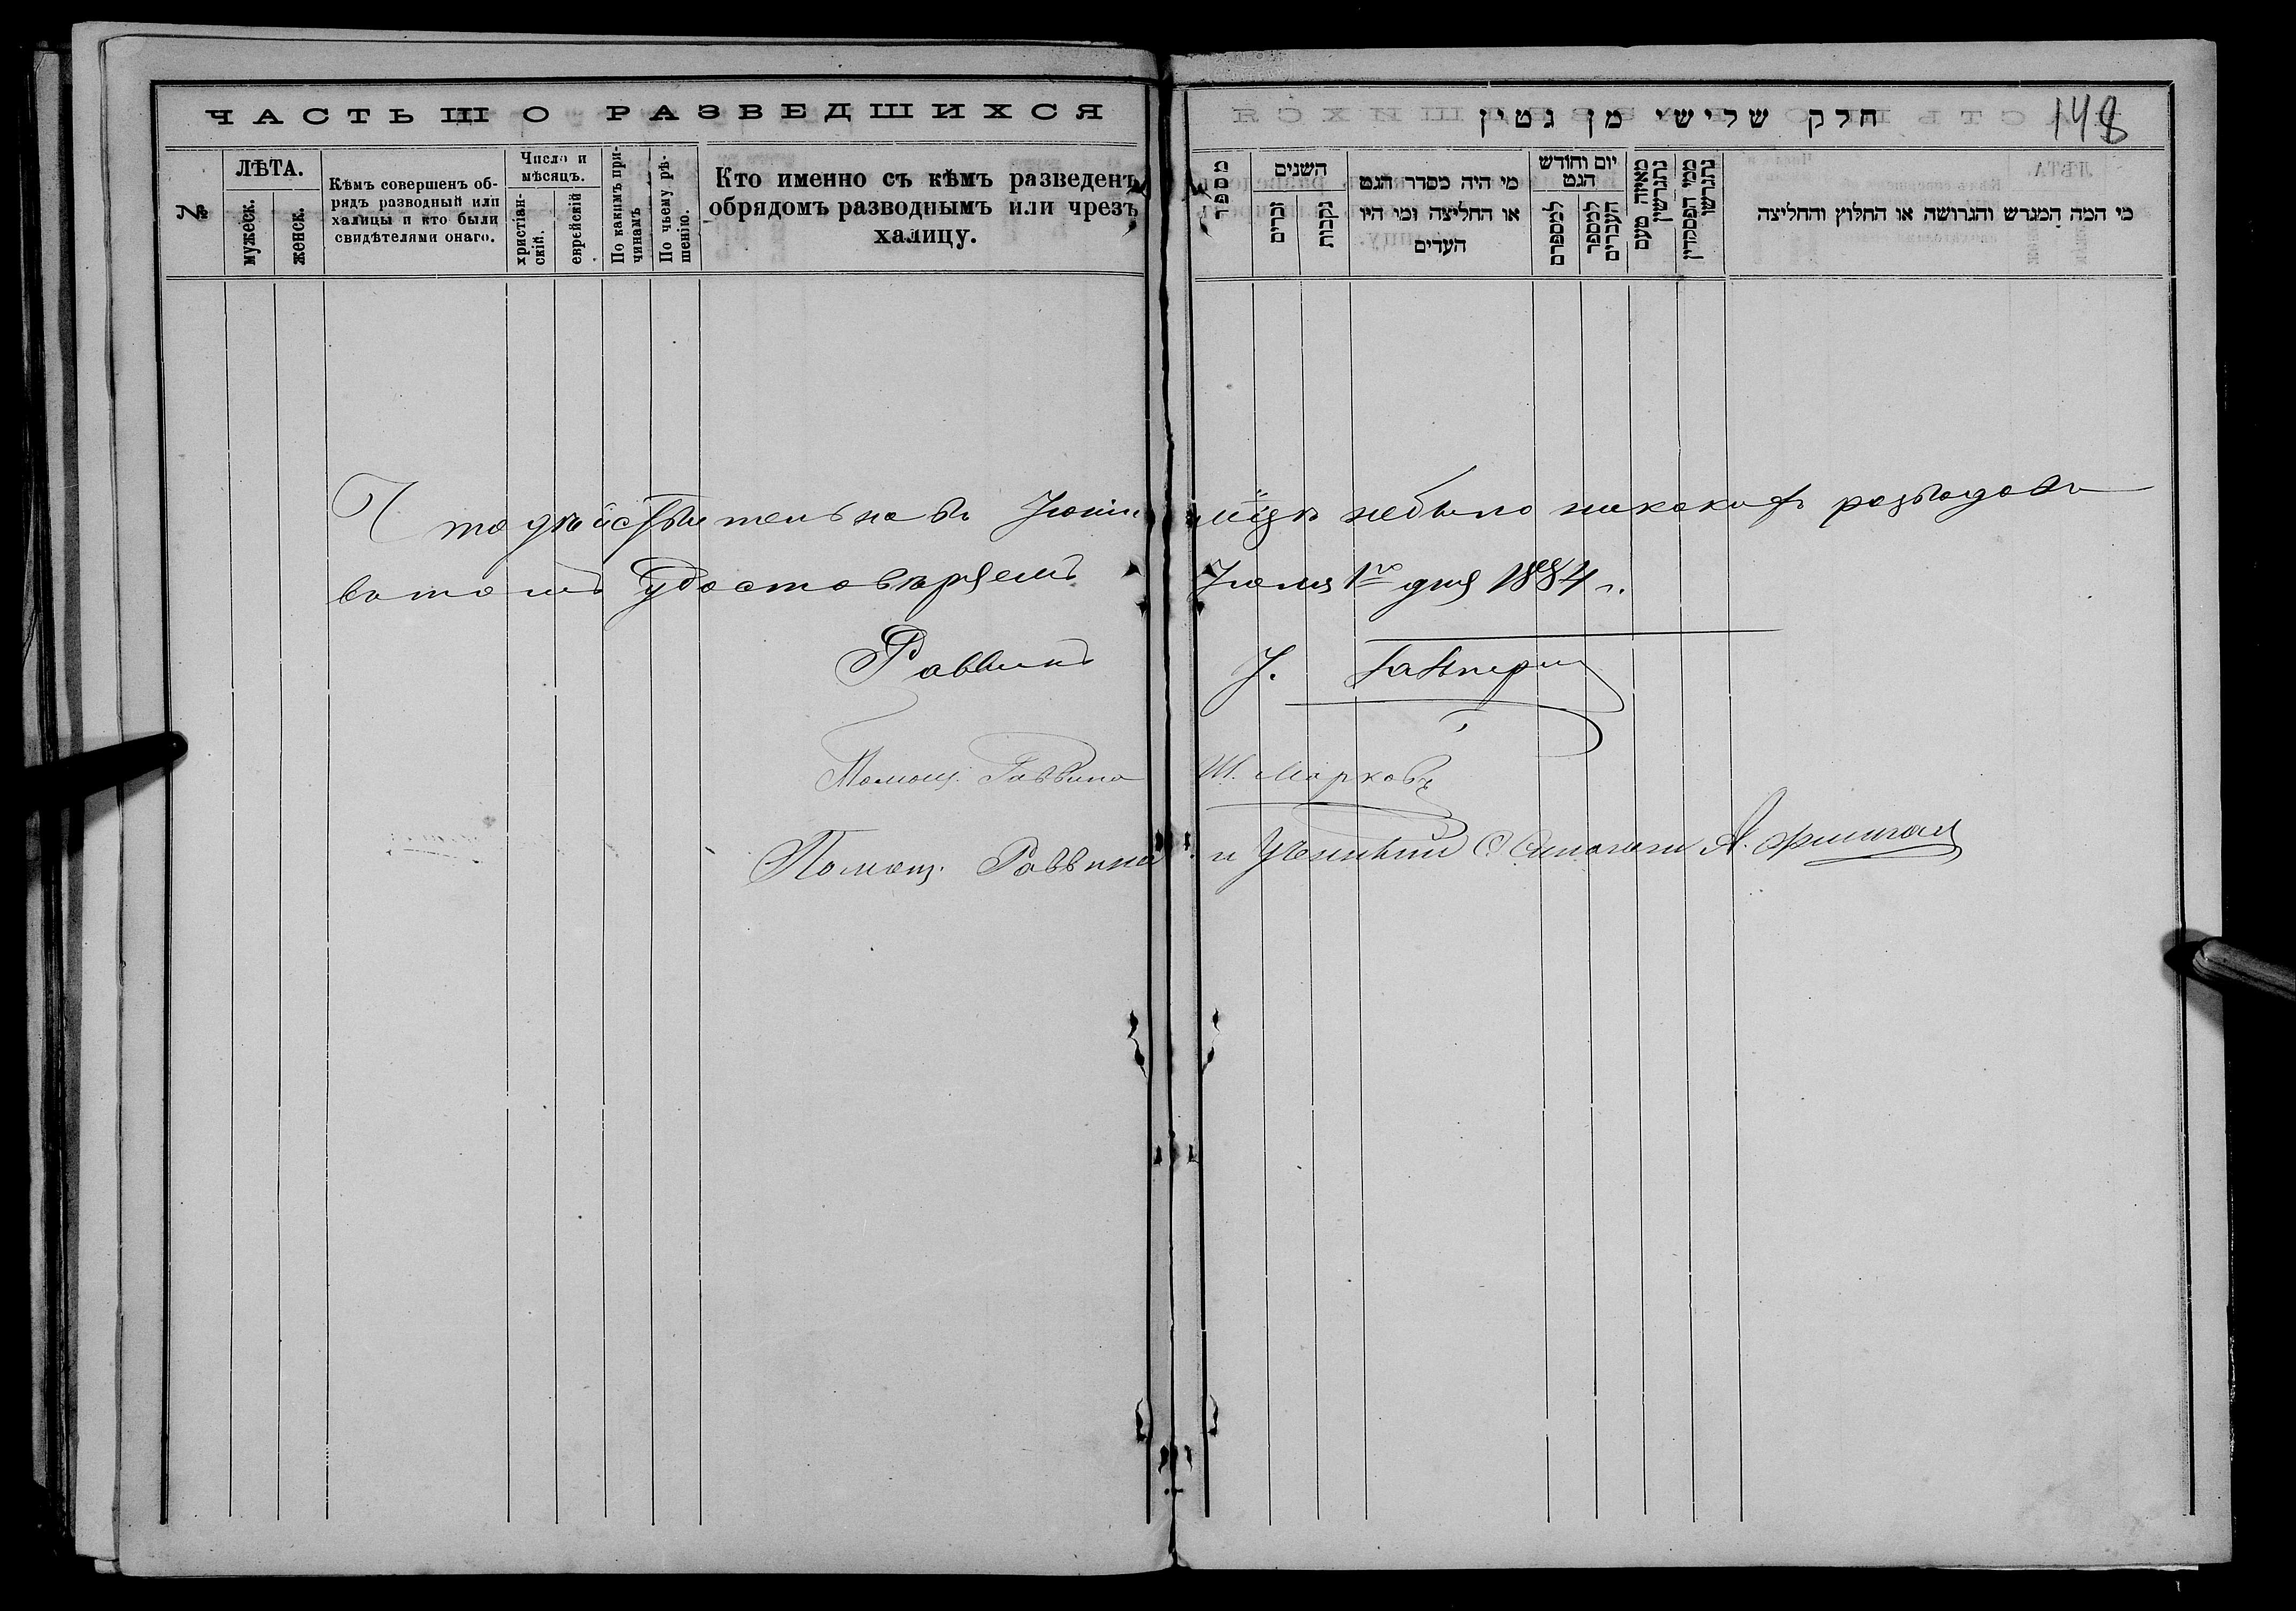 ЧАСТЬ III О РАЗВЕДШИХСЯ
№
ЛѢТА.
мужеск.
женск.
Кѣмъ совершенъ об-
рядъ разводный или
халицы и кто были
свидѣтелями онаго.
Число и
мѣсяцъ.
христіан-
скій.
еврейскій
По какимъ при-
чинамъ
По чьему рѣ-
шенію.
Кто именно съ кѣмъ разведенъ
обрядомъ разводнымъ или чрезъ
халицу.
חלק שלישי מן גטין
148
מספר
השנים
זכרים
נקבות
מי היה מסדר הגט
או החליצה ומי היו
העדים
יום וחודש
הגט
למספרם
למספר
העברים
מאיזה טעם
נתגרשין
ממי הפסקדין
נתגרשו
מי המה המגרש והגרושה או החלוץ והחליצה
Что дѣйствительно въ Іюнѣ мцѣ небыло никакихъ разводовъ
вътомъ удостовѣряемъ Іюля 1го дня 1884 г.
Раввинъ І. Гальперин
Помощ. Раввина Ш. Марковъ
Помощ. Раввина и Ученый С. Синагоги А. Фришман